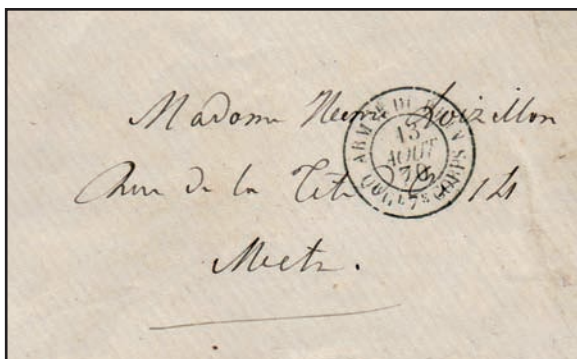 Madame Henri Loizillon
Rue de la Tête 14
Metz.
ARMÉE DU RHIN
13
AOUT
70
7E CORPS